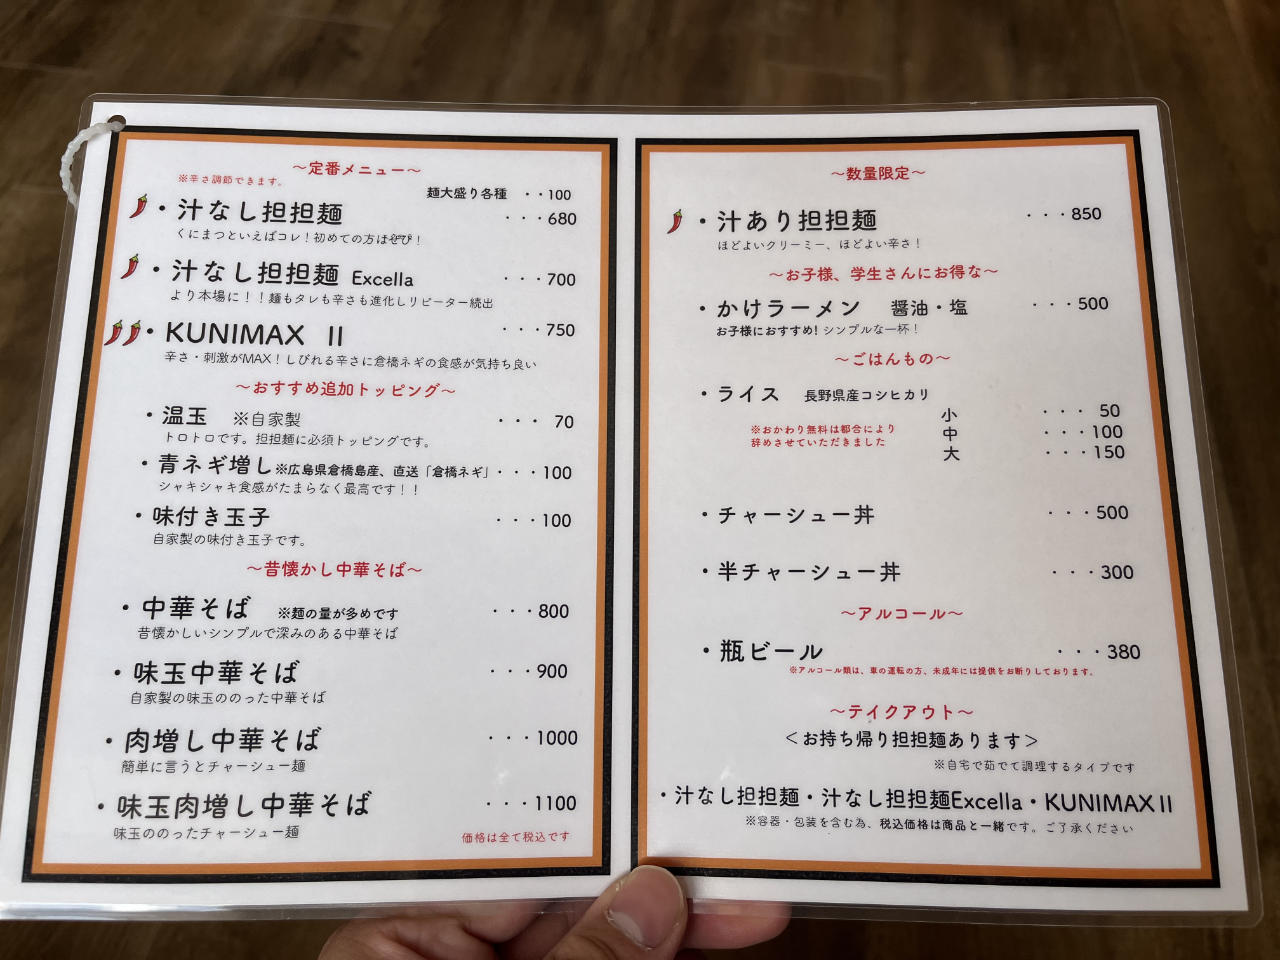 ～定番メニュー～
※辛さ調節できます。
麺大盛り各種 ・・100
・汁なし担担麺 ・・・680
くにまつといえばコレ！初めての方はぜひ！
・汁なし担担麺 Excella ・・・700
より本場に！！麺もタレも辛さも進化しリピーター続出
・KUNIMAX II ・・・750
辛さ・刺激がMAX！しびれる辛さに倉橋ネギの食感が気持ち良い
～おすすめ追加トッピング～
・温玉 ※自家製 ・・・ 70
トロトロです。担担麺に必須トッピングです。
・青ネギ増し※広島県倉橋島産、直送「倉橋ネギ」・・・100
シャキシャキ食感がたまらなく最高です！！
・味付き玉子 ・・・100
自家製の味付き玉子です。
～昔懐かし中華そば～
・中華そば ※麺の量が多めです ・・・800
昔懐かしいシンプルで深みのある中華そば
・味玉中華そば ・・・900
自家製の味玉ののった中華そば
・肉増し中華そば ・・・1000
簡単に言うとチャーシュー麺
・味玉肉増し中華そば ・・・1100
味玉ののったチャーシュー麺
価格は全て税込です
～数量限定～
・汁あり担担麺 ・・・850
ほどよいクリーミー、ほどよい辛さ！
～お子様、学生さんにお得な～
・かけラーメン 醤油・塩 ・・・500
お子様におすすめ! シンプルな一杯！
～ごはんもの～
・ライス 長野県産コシヒカリ
小 ・・・ 50
※おかわり無料は都合により
中 ・・・100
辞めさせていただきました
大 ・・・150
・チャーシュー丼 ・・・500
・半チャーシュー丼 ・・・300
～アルコール～
・瓶ビール ・・・380
※アルコール類は、車の運転の方、未成年には提供をお断りしております。
～テイクアウト～
＜お持ち帰り担担麺あります＞
※自宅で茹でて調理するタイプです
・汁なし担担麺・汁なし担担麺Excella・KUNIMAX II
※容器・包装を含む為、税込価格は商品と一緒です。ご了承ください